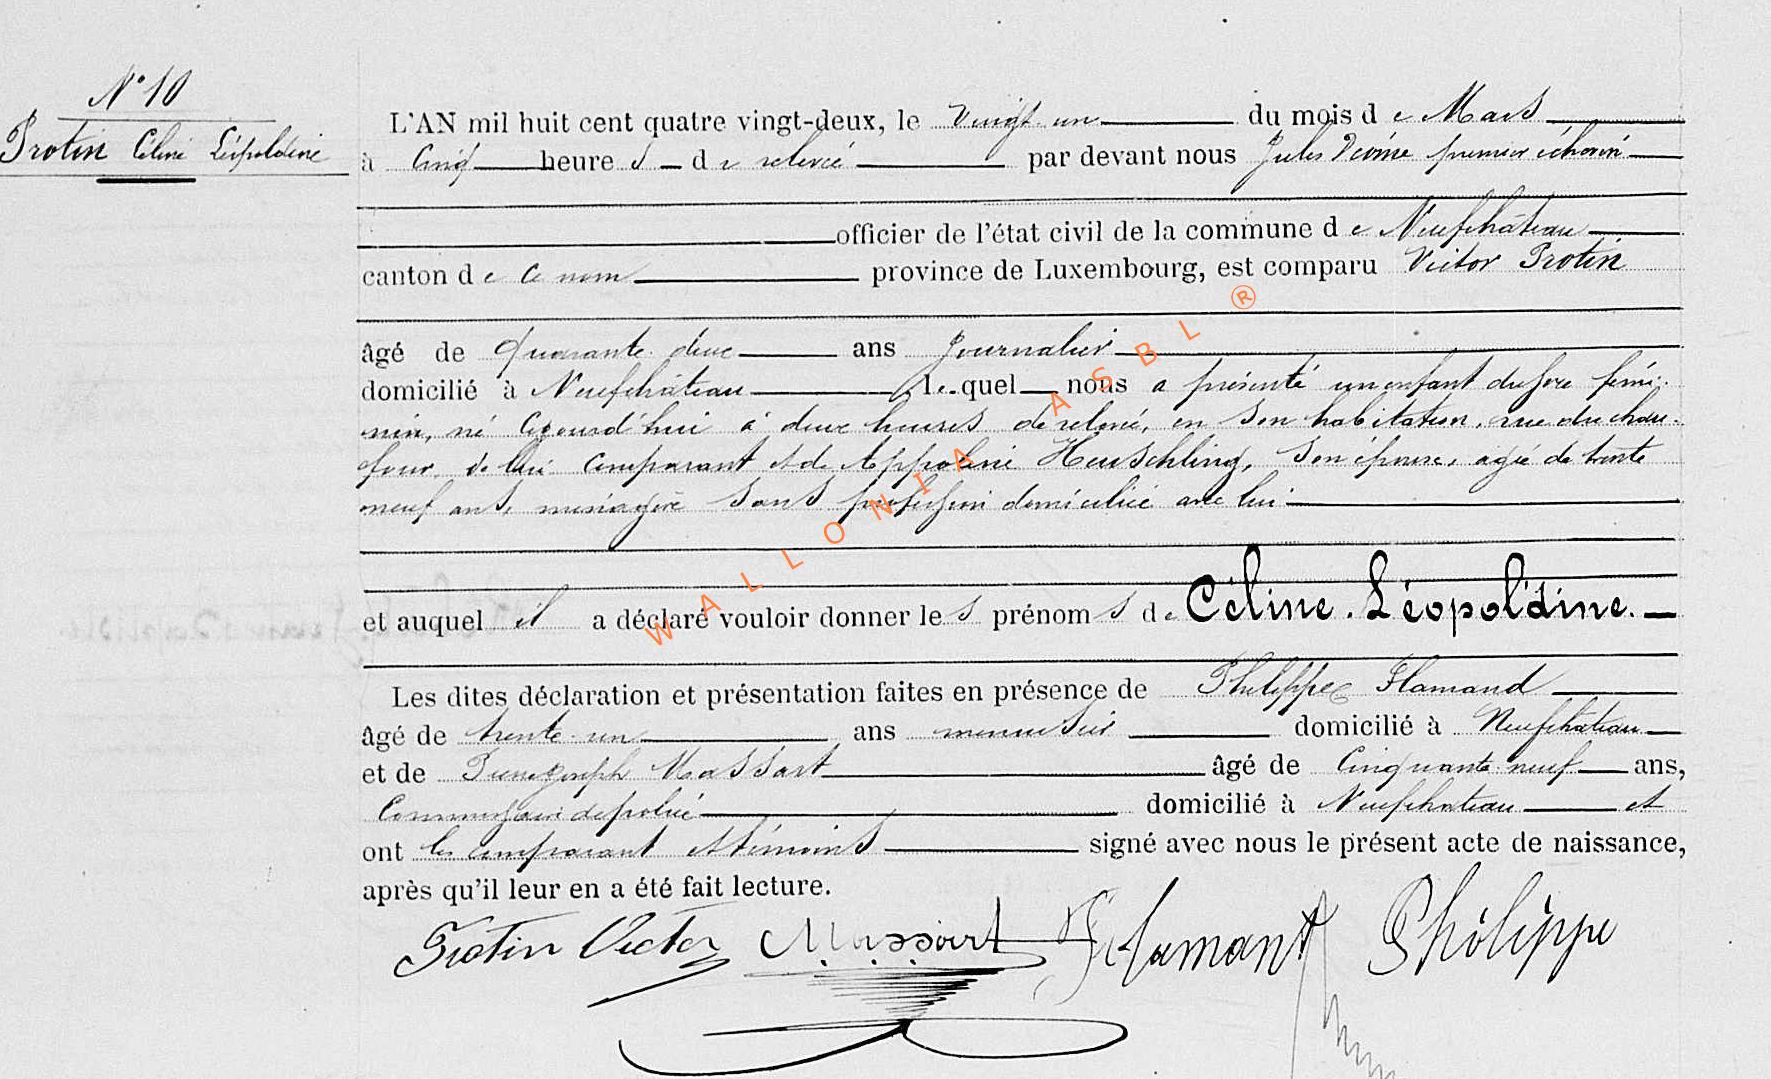 N° 10
Protin Céline Léopoldine
L'AN mil huit cent quatre vingt-deux, le vingt un du mois de Mars
à Cinq heures de relevée par devant nous Jules premier échevin
officier de l'état civil de la commune de Neufchâteau
canton de ce nom province de Luxembourg, est comparu Victor Protin
âgé de quarante deux ans Journalier
domicilié à Neufchâteau lequel nous a présenté un enfant du sexe fémi-
nin, né aujourd'hui à deux heures de relevée, en son habitation, rue du chau-
four, de lui comparant et de Appoline Heuschling, son épouse, agée de trente
neuf ans, ménagère sans profession domiciliée avec lui
et auquel il a déclaré vouloir donner les prénoms de Céline. Léopoldine.
Les dites déclaration et présentation faites en présence de Philippe Flamand
âgé de trente-un ans menuisier domicilié à Neufchâteau
et de Massart âgé de Cinquante-neuf ans,
Commissaire de police domicilié à Neufchateau et
ont les comparant et témoins signé avec nous le présent acte de naissance,
après qu'il leur en a été fait lecture.
Protin Victor Massart Flamant Philippe
WALLONIA ASBL ®